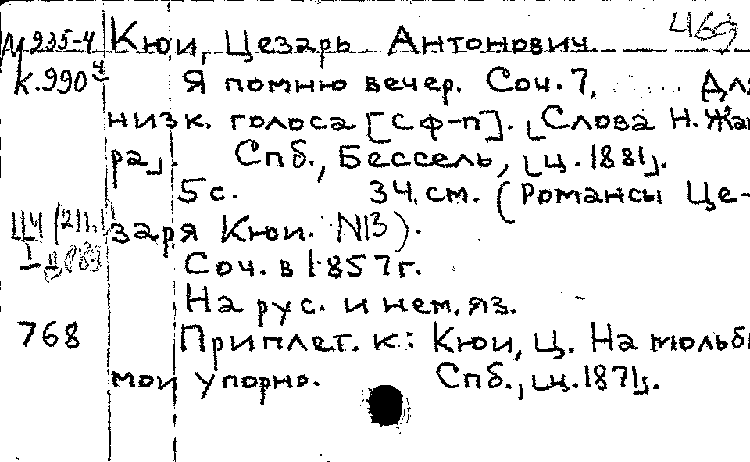 М 235-4 Кюи, Цезарь Антонович 469
К.990 Я помню вечер. Соч. 7, ..... Для
низк. голоса [с ф-п]. [Слова Н. Жан
ра]. Спб., Бессель, [ц. 1881].
5 с. 34 см. (Романсы Це-
заря Кюи. №13).
Соч. в 1857 г.
На рус. и нем. яз.
768 Приплет. к: Кюи, Ц. На мольбы
мои упорно. Спб., [ц. 1871].